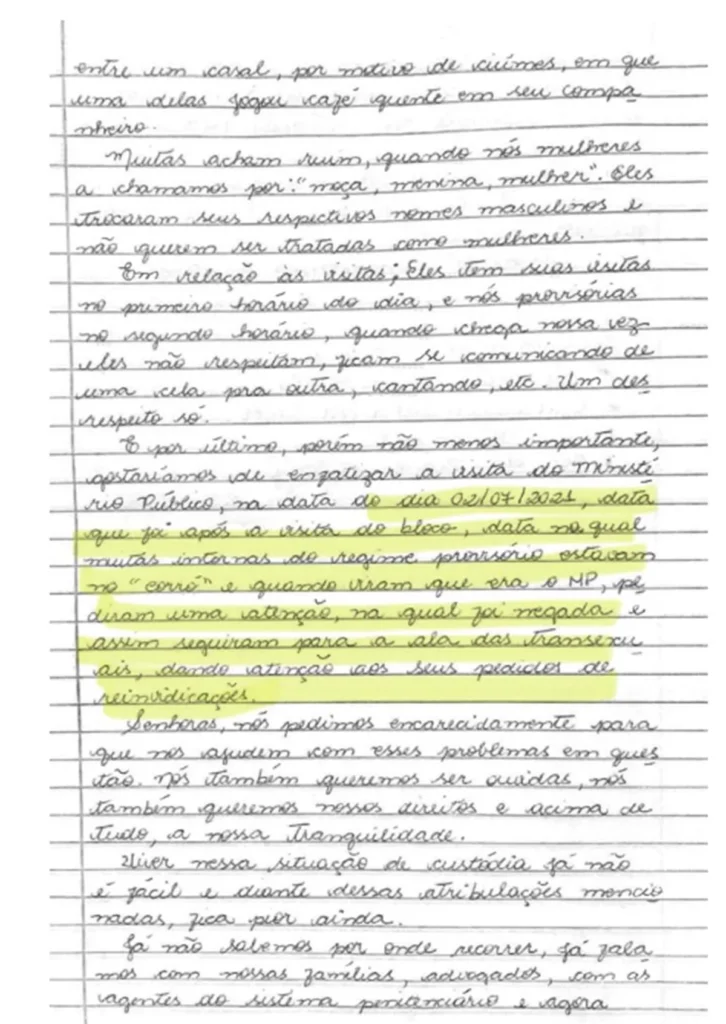 entre um casal, por motivo de ciúmes, em que
uma delas jogou café quente em seu compa
nheiro.
Muitas acham ruim, quando nós mulheres
a chamamos por: "moça, menina, mulher". Eles
trocaram seus respectivos nomes masculinos e
não querem ser tratadas como mulheres.
Em relação às visitas; Eles tem suas visitas
no primeiro horário do dia, e nós provisórias
no segundo horário, quando chega nossa vez
eles não respeitam, ficam se comunicando de
uma cela pra outra, cantando, etc. Um des
respeito só.
E por último, porém não menos importante,
gostaríamos de enfatizar a visita do Ministé
rio Público, na data do dia 02/07/2021, data
que foi após a visita do bloco, data na qual
muitas internas do regime provisório estavam
no "corró" e quando viram que era o MP, pe
diram uma atenção, na qual foi negada e
assim seguiram para a ala das transexu
ais, dando atenção aos seus pedidos de
reinvidicações.
Senhoras, nós pedimos encarecidamente para
que nos ajudem com esses problemas em ques
tão. Nós também queremos ser ouvidas, nós
também queremos nossos direitos e acima de
tudo, a nossa tranquilidade.
Viver nessa situação de custódia já não
é fácil e diante dessas atribulações mencio
nadas, fica pior ainda.
Já não sabemos por onde recorrer, já fala
mos com nossas famílias, advogados, com as
agentes do sistema penitenciário e agora